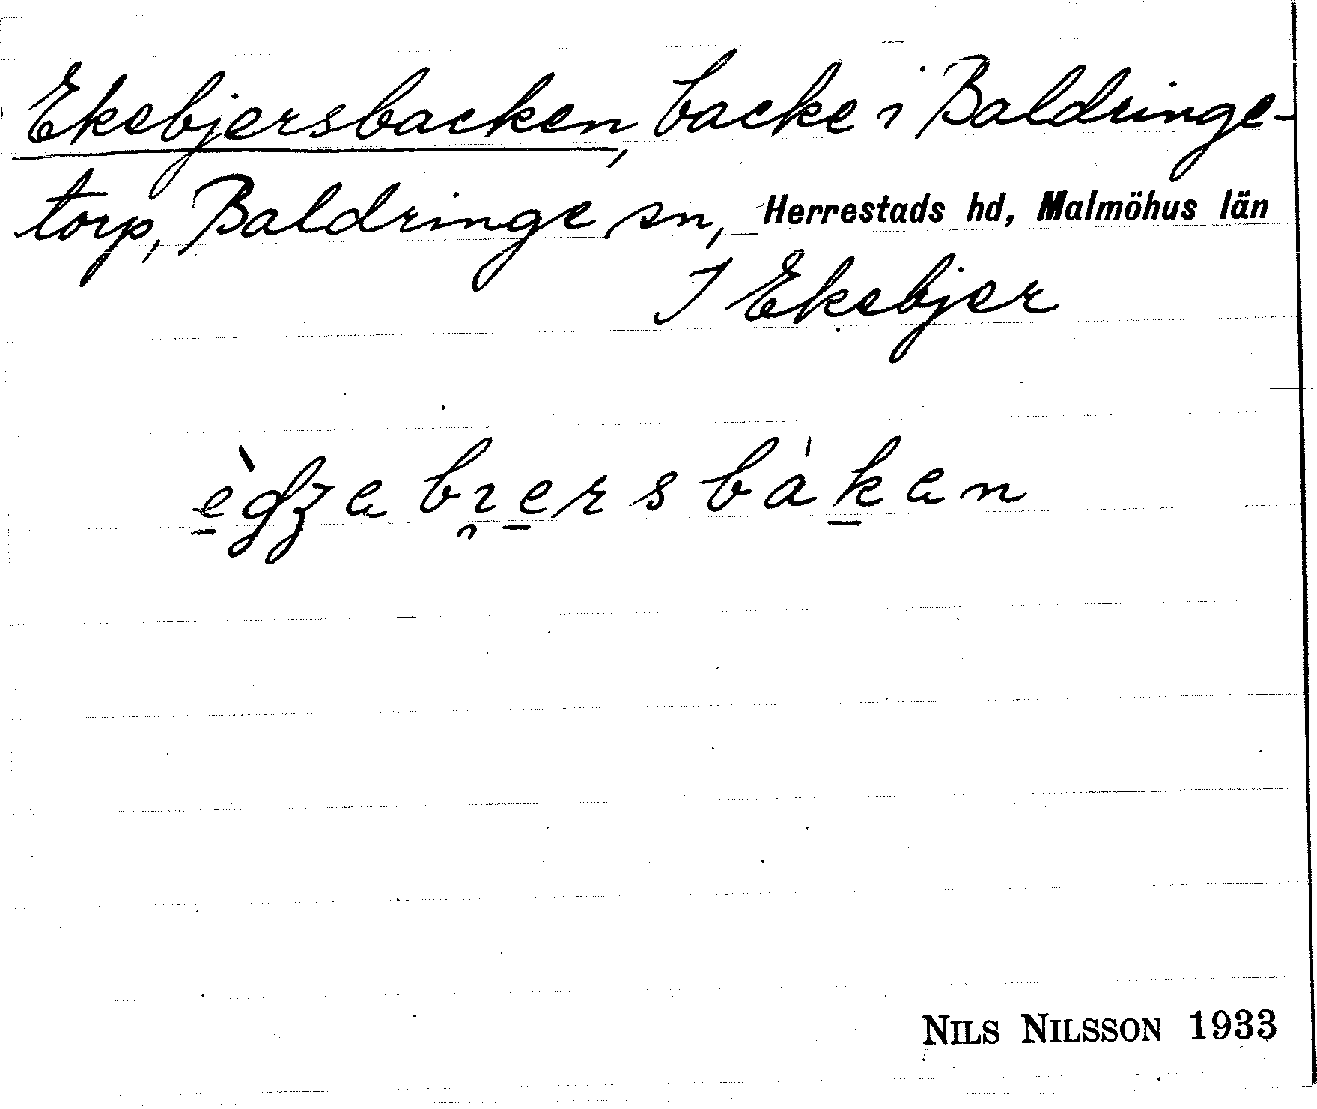 Ekebjersbacken, backe i Baldringe-
torp, Baldringe sn, Herrestads hd, Malmöhus län
I Ekebjer
NILS NILSSON 1933